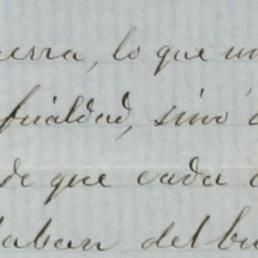 erra, lo que un
frialdad, sino
de que cada
taban del bu